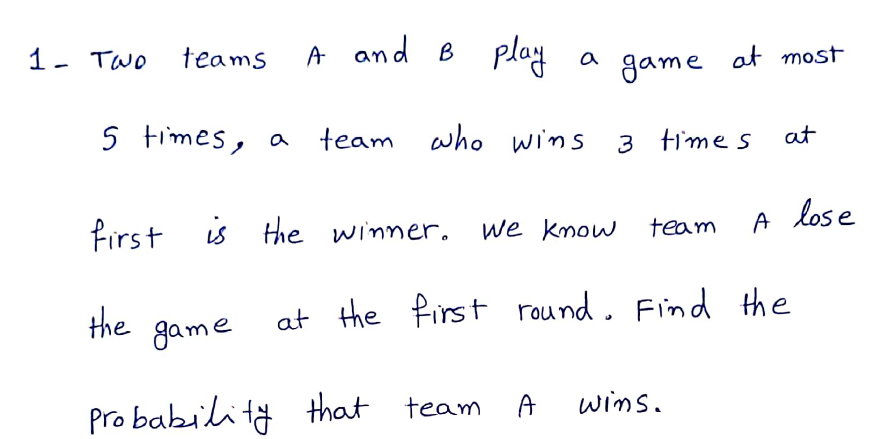 1- Two teams A and B play a game at most
5 times, a team who wins 3 times at
first is the winner. We know team A lose
the game at the first round. Find the
probability that team A wins.